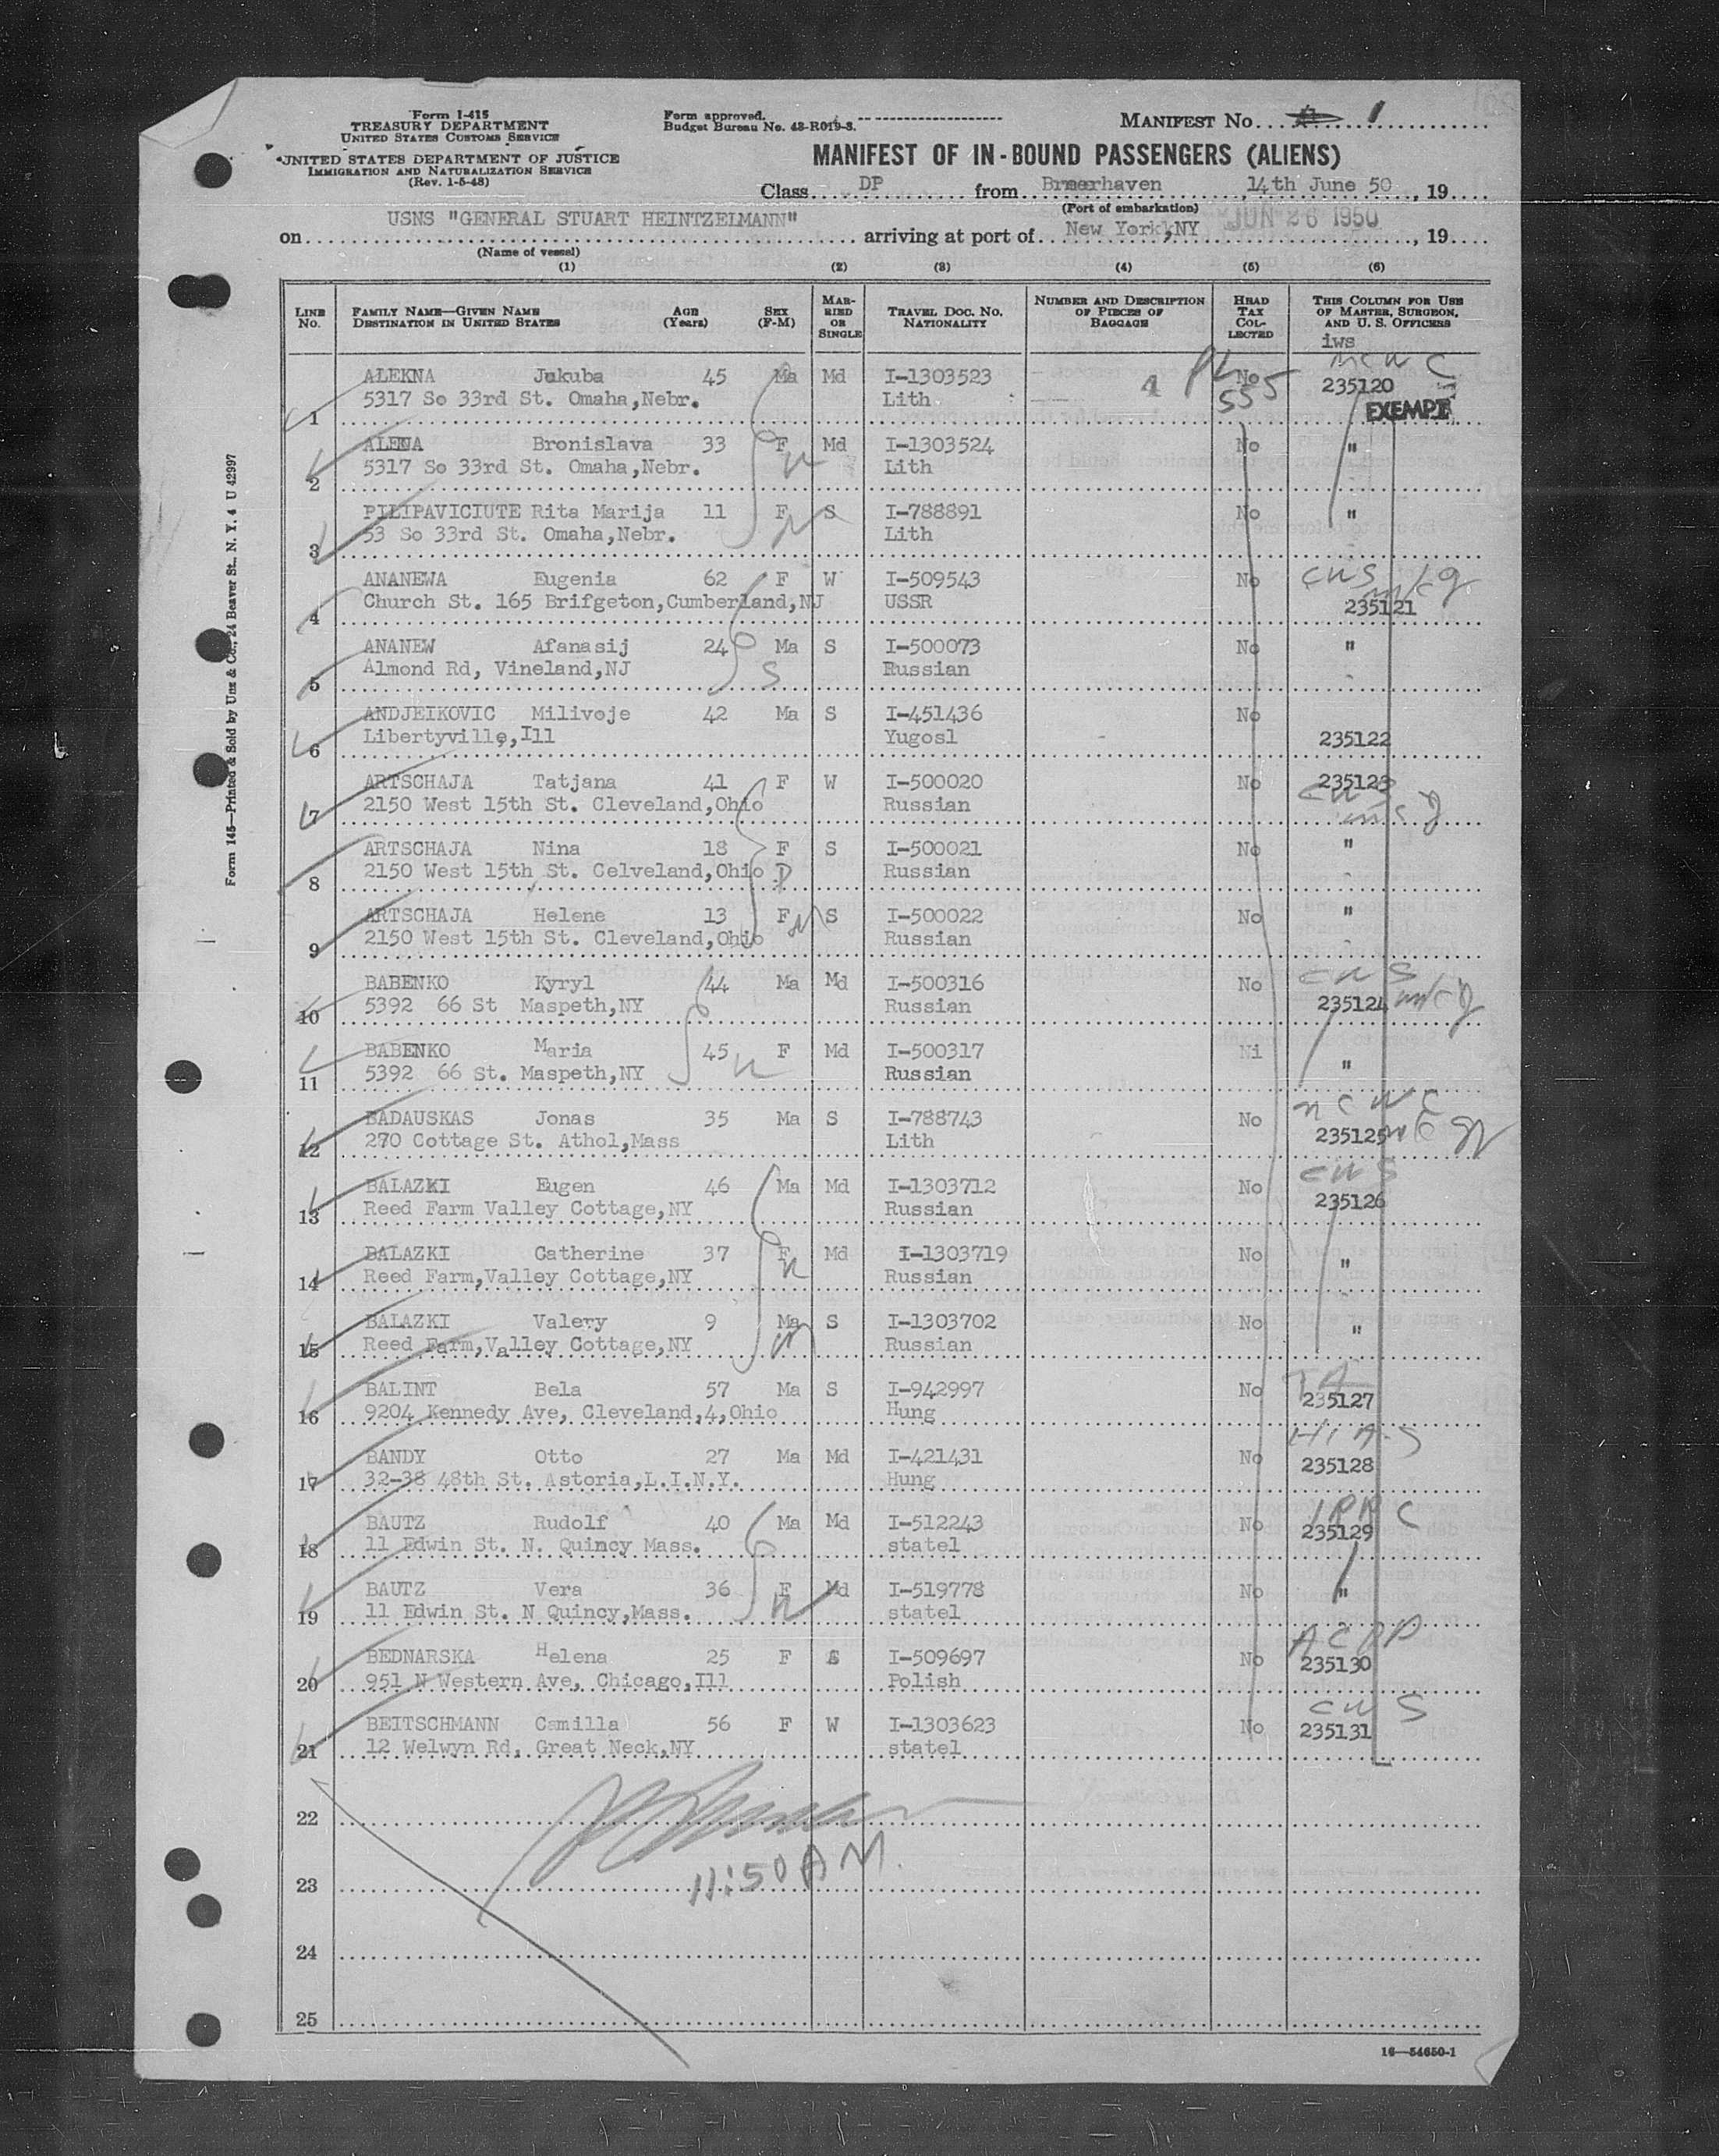 Form I-415
TREASURY DEPARTMENT
UNITED STATES CUSTOMS SERVICE
UNITED STATES DEPARTMENT OF JUSTICE
IMMIGRATION AND NATURALIZATION SERVICE
(Rev. 1-5-48)
Form approved.
Budget Bureau No. 43-R019-3.
MANIFEST No. 1
MANIFEST OF IN-BOUND PASSENGERS (ALIENS)
Class DP from Bremerhaven, 14th June 50, 19
(Port of embarkation)
on USNS "GENERAL STUART HEINTZELMANN" arriving at port of New York,NY JUN 26 1950, 19
(Name of vessel)
(1) (2) (3) (4) (5) (6)
LINE No. FAMILY NAME—GIVEN NAME DESTINATION IN UNITED STATES AGE (Years) SEX (F-M) MARRIED OR SINGLE TRAVEL DOC. NO. NATIONALITY NUMBER AND DESCRIPTION OF PIECES OF BAGGAGE HEAD TAX COLLECTED THIS COLUMN FOR USE OF MASTER, SURGEON, AND U. S. OFFICERS
iws
ALEKNA Jukuba 45 Ma Md I-1303523 4 PL 555 No NCWC 235120
1 5317 So 33rd St. Omaha,Nebr. Lith EXEMPT
ALENA Bronislava 33 F Md I-1303524 No "
2 5317 So 33rd St. Omaha,Nebr. N Lith
PILIPAVICIUTE Rita Marija 11 F S I-788891 No "
3 53 So 33rd St. Omaha,Nebr. N Lith
ANANEWA Eugenia 62 F W I-509543 No CWS
4 Church St. 165 Brifgeton,Cumberland,NJ USSR 235121
ANANEW Afanasij 24 Ma S I-500073 No "
5 Almond Rd, Vineland,NJ S Russian
ANDJEIKOVIC Milivoje 42 Ma S I-451436 No
6 Libertyville,Ill Yugosl 235122
ARTSCHAJA Tatjana 41 F W I-500020 No 235123
7 2150 West 15th St. Cleveland,Ohio Russian CWS
ARTSCHAJA Nina 18 F S I-500021 No "
8 2150 West 15th St. Celveland,Ohio D Russian
ARTSCHAJA Helene 13 F N S I-500022 No "
9 2150 West 15th St. Cleveland,Ohio Russian
BABENKO Kyryl 44 Ma Md I-500316 No CWS
10 5392 66 St Maspeth,NY Russian 235124
BABENKO Maria 45 F Md I-500317 Ni
11 5392 66 St. Maspeth,NY N Russian "
BADAUSKAS Jonas 35 Ma S I-788743 No NCWC
12 270 Cottage St. Athol,Mass Lith 235125
BALAZKI Eugen 46 Ma Md I-1303712 No CWS
13 Reed Farm Valley Cottage,NY Russian 235126
BALAZKI Catherine 37 F Md I-1303719 No "
14 Reed Farm,Valley Cottage,NY N Russian
BALAZKI Valery 9 Ma S I-1303702 No "
15 Reed Farm,Valley Cottage,NY N Russian
BALINT Bela 57 Ma S I-942997 No 235127
16 9204 Kennedy Ave, Cleveland,4,Ohio Hung
BANDY Otto 27 Ma Md I-421431 No HIAS
17 32-38 48th St. Astoria,L.I.N.Y. Hung 235128
BAUTZ Rudolf 40 Ma Md I-512243 No IRRC 235129
18 11 Edwin St. N. Quincy Mass. statel
BAUTZ Vera 36 F Md I-519778 No "
19 11 Edwin St. N Quincy,Mass. N statel
BEDNARSKA Helena 25 F S I-509697 No ACPP 235130
20 951 N Western Ave, Chicago,Ill Polish
BEITSCHMANN Camilla 56 F W I-1303623 No CWS 235131
21 12 Welwyn Rd, Great Neck,NY statel
22
23 11:50 AM.
24
25
16—54650-1
Form 145—Printed & Sold by Unz & Co., 24 Beaver St., N. Y. 4 U 42997